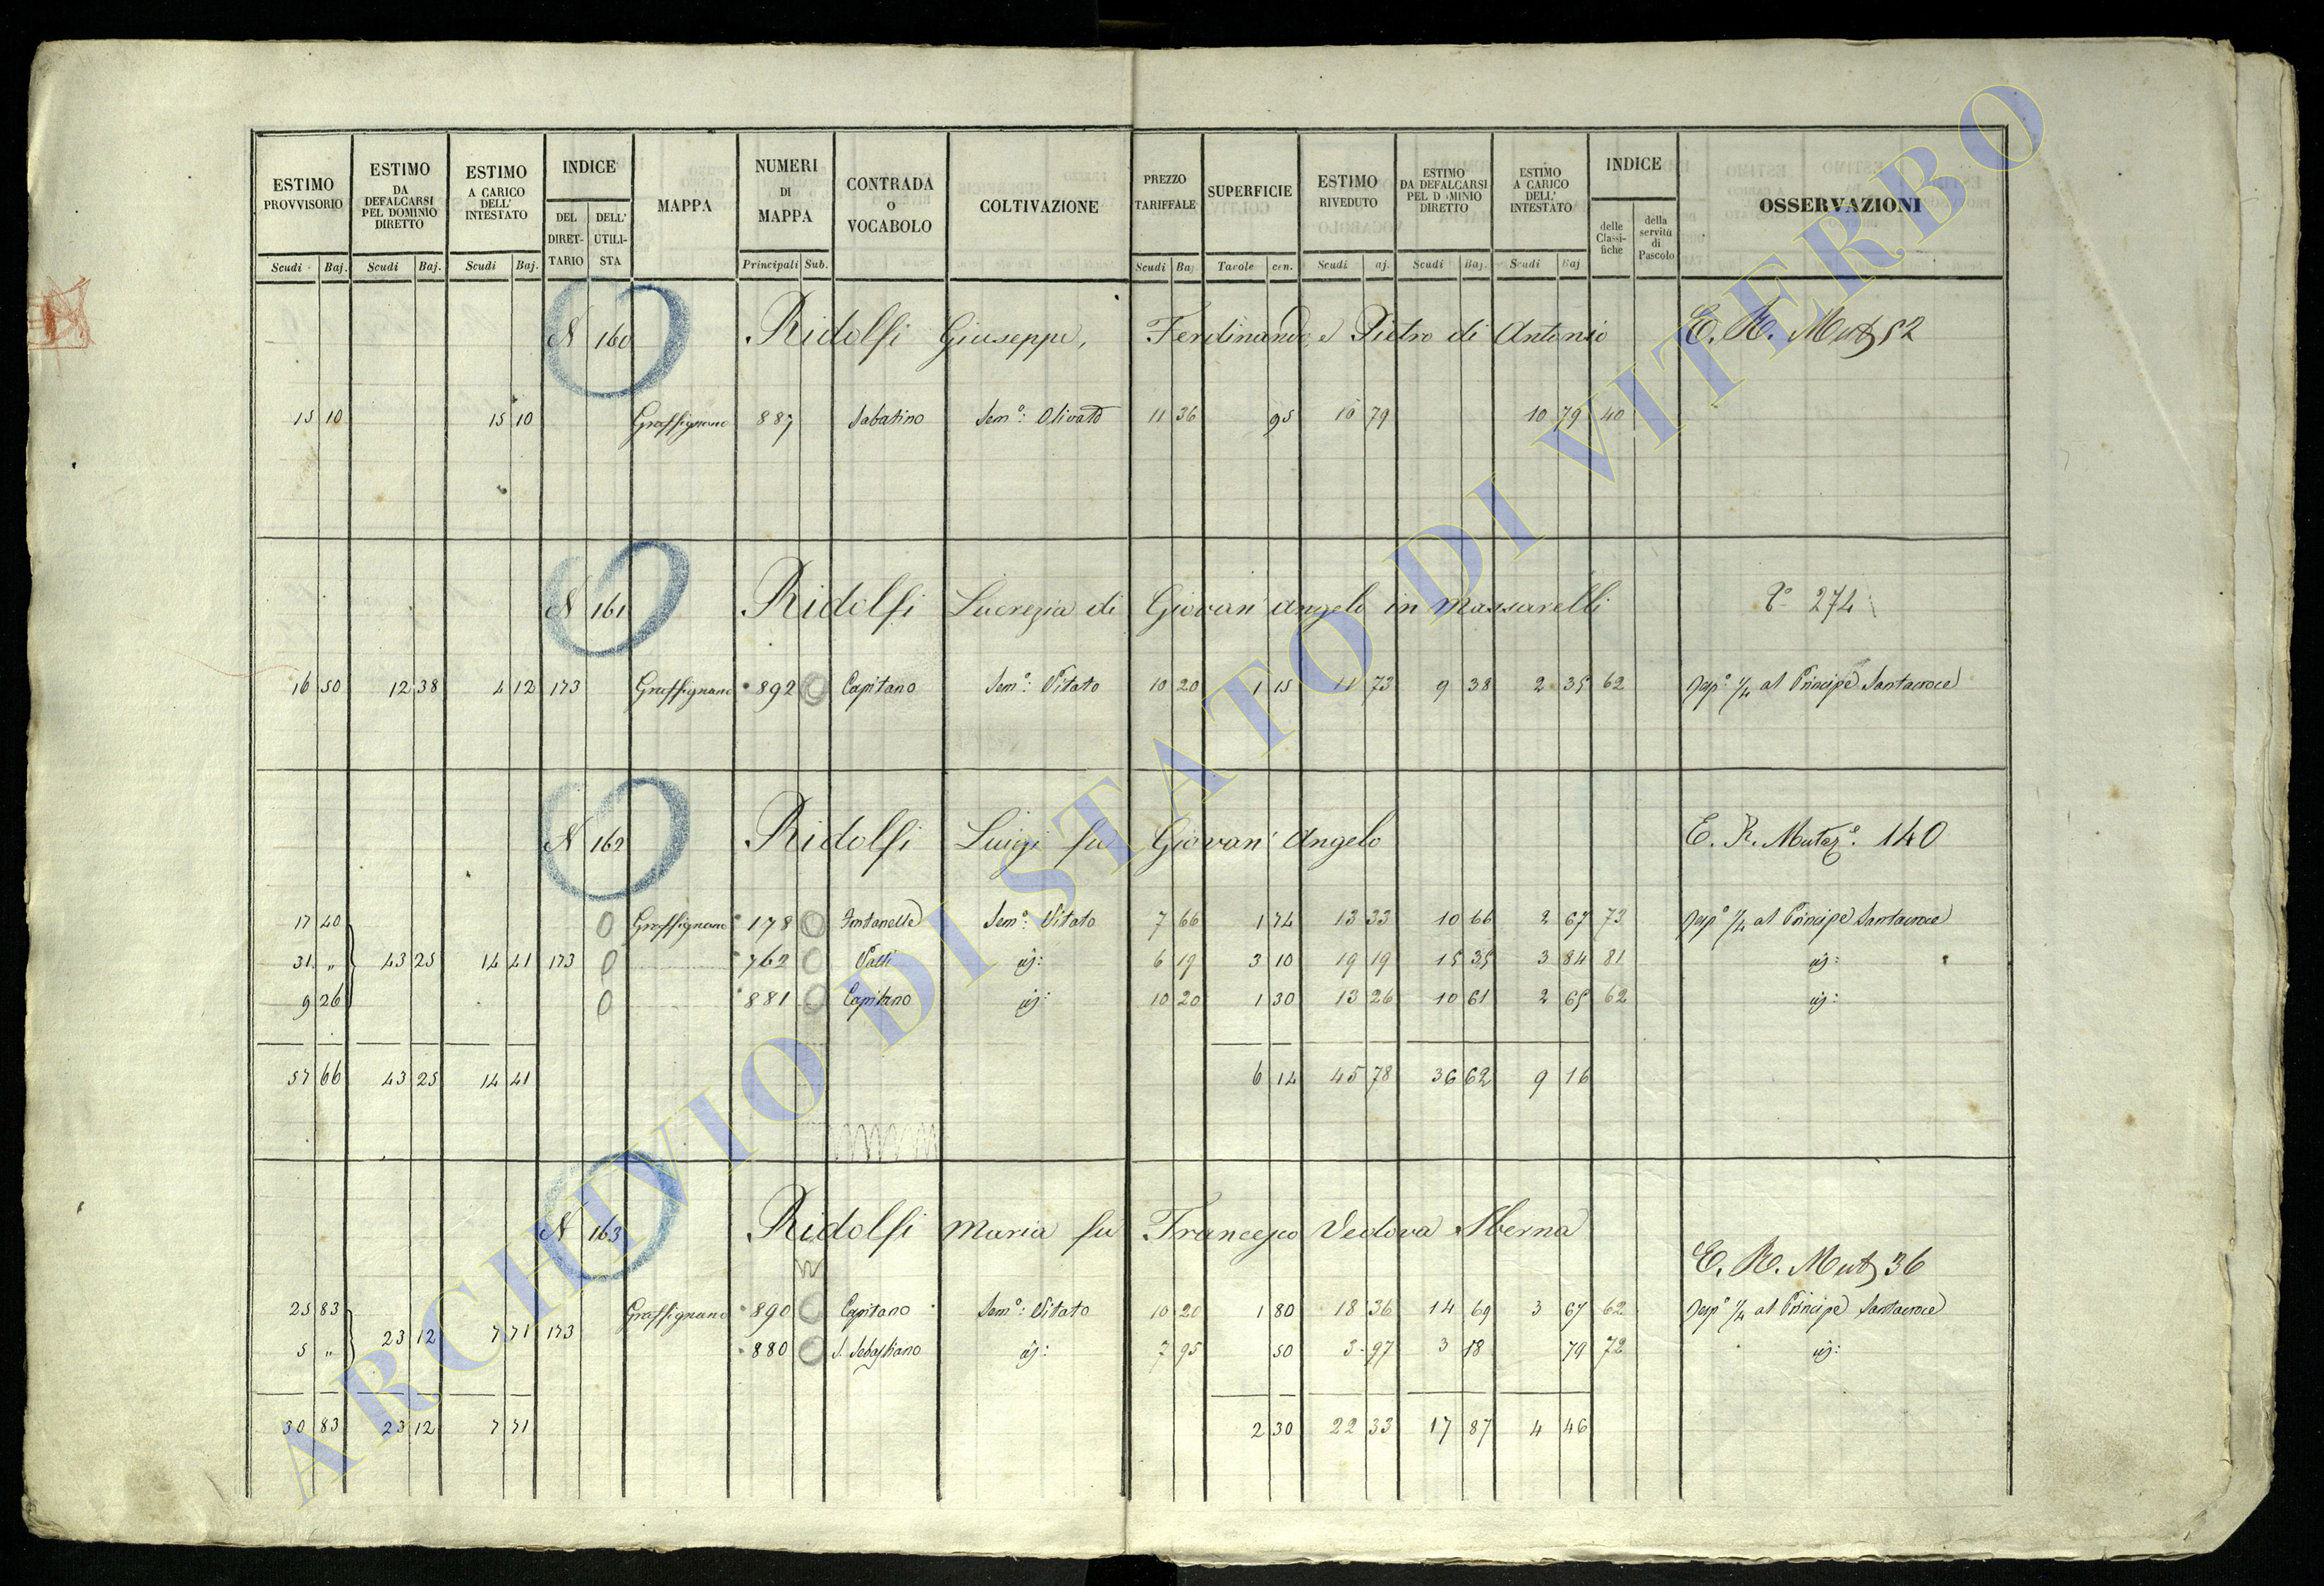 ESTIMO PROVVISORIO
Scudi Baj.
ESTIMO DA DEFALCARSI PEL DOMINIO DIRETTO
Scudi Baj.
ESTIMO A CARICO DELL' INTESTATO
Scudi Baj.
INDICE
DEL DIRET-TARIO
DELL' UTILI-STA
MAPPA
NUMERI DI MAPPA
Principali Sub.
CONTRADA O VOCABOLO
COLTIVAZIONE
PREZZO TARIFFALE
Scudi Baj
SUPERFICIE
Tavole cen.
ESTIMO RIVEDUTO
Scudi aj.
ESTIMO DA DEFALCARSI PEL D MINIO DIRETTO
Scudi Baj.
ESTIMO A CARICO DELL' INTESTATO
Scudi Baj
INDICE
delle Classi-fiche
della servitù di Pascolo
OSSERVAZIONI
N 160 Ridolfi Giuseppe, Ferdinando, e Pietro di Antonio E. R. Mutz 52
15 10 15 10 Graffignano 887 Sabatino Sem.º: Olivato 11 36 95 10 79 10 79 40
N 161 Ridolfi Lucrezia di Giovan' Angelo in Massarelli 274
16 50 12 38 4 12 173 Graffignano 892 Capitano Sem.º: Vitato 10 20 1 15 11 73 9 38 2 35 62 1/4 al Principe Santacroce
N 162 Ridolfi Luigi fu Giovan' Angelo E. R. Mutaz.e 140
17 40 Graffignano 178 Fontanelle Sem.º: Vitato 7 66 1 74 13 33 10 66 2 67 72 1/4 al Principe Santacroce
31 " 43 25 14 41 173 762 Valli 6 19 3 10 19 19 15 35 3 84 81
9 26 881 Capitano 10 20 1 30 13 26 10 61 2 65 62
57 66 43 25 14 41 6 14 45 78 36 62 9 16
N 163 Ridolfi Maria fu Francesco Vedova Sberna
E. R. Mutz 36
25 83 Graffignano 890 Capitano Sem.º: Vitato 10 20 1 80 18 36 14 69 3 67 62 1/4 al Principe Santacroce
5 " 23 12 7 71 173 880 S. Sebastiano 7 95 50 3 97 3 18 79 72
30 83 23 12 7 71 2 30 22 33 17 87 4 46
ARCHIVIO DI STATO DI VITERBO